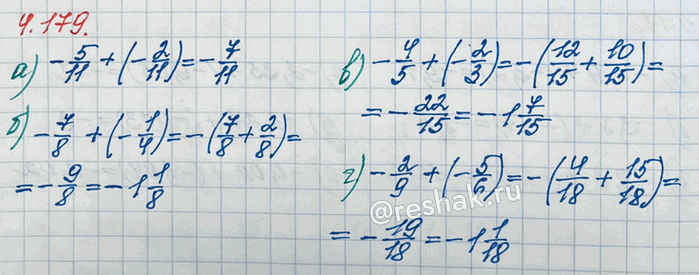 4.179.
а) -5/11 + (-2/11) = -7/11
б) -7/8 + (-1/4) = -(7/8 + 2/8) =
= -9/8 = -1 1/8
в) -4/5 + (-2/3) = -(12/15 + 10/15) =
= -22/15 = -1 7/15
г) -2/9 + (-5/6) = -(4/18 + 15/18) =
= -19/18 = -1 1/18
@reshak.ru